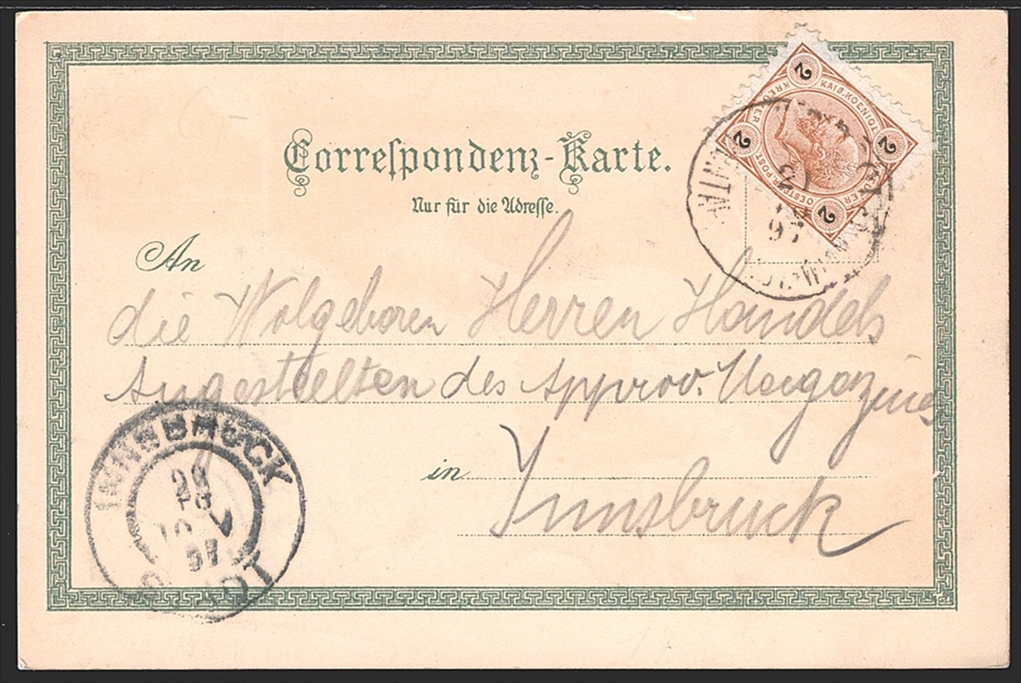 Correſpondenz-Karte.
Nur für die Adreſſe.
An
die Wolgeboren Herren Handels
Angestellten des Approv. Magazines
in Innsbruck
2 2 2 2
KAIS. KOENIGL. OESTERR. POST
KREUZER
97
INNSBRUCK
10 V
97
STADT